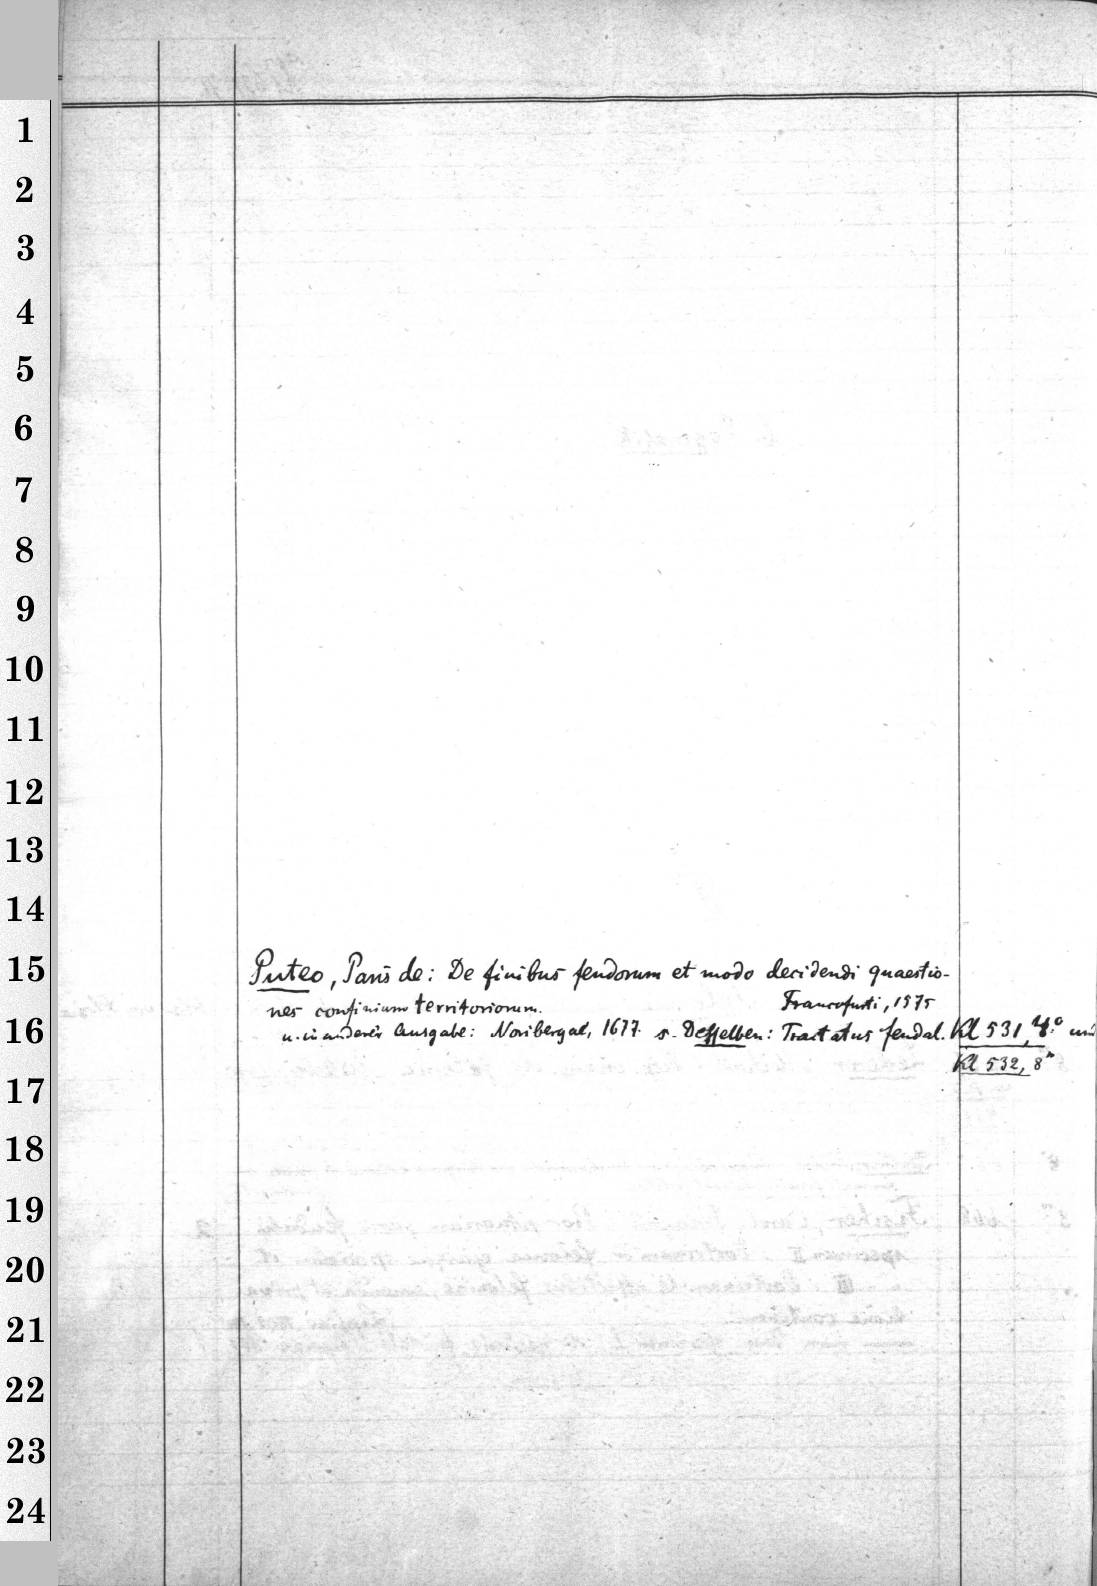 1
2
3
4
5
6
7
8
9
10
11
12
13
14
15
16
17
18
19
20
21
22
23
24
Puteo, Paris de: De finibus feudorum et modo decidendi quaestio-
nes confinium territoriorum. Francofurti, 1575
u. in anderer Ausgabe: Noribergae, 1677. s. Desselben: Tractatus feudal. Kl 531, 4.° und
Kl 532, 8°